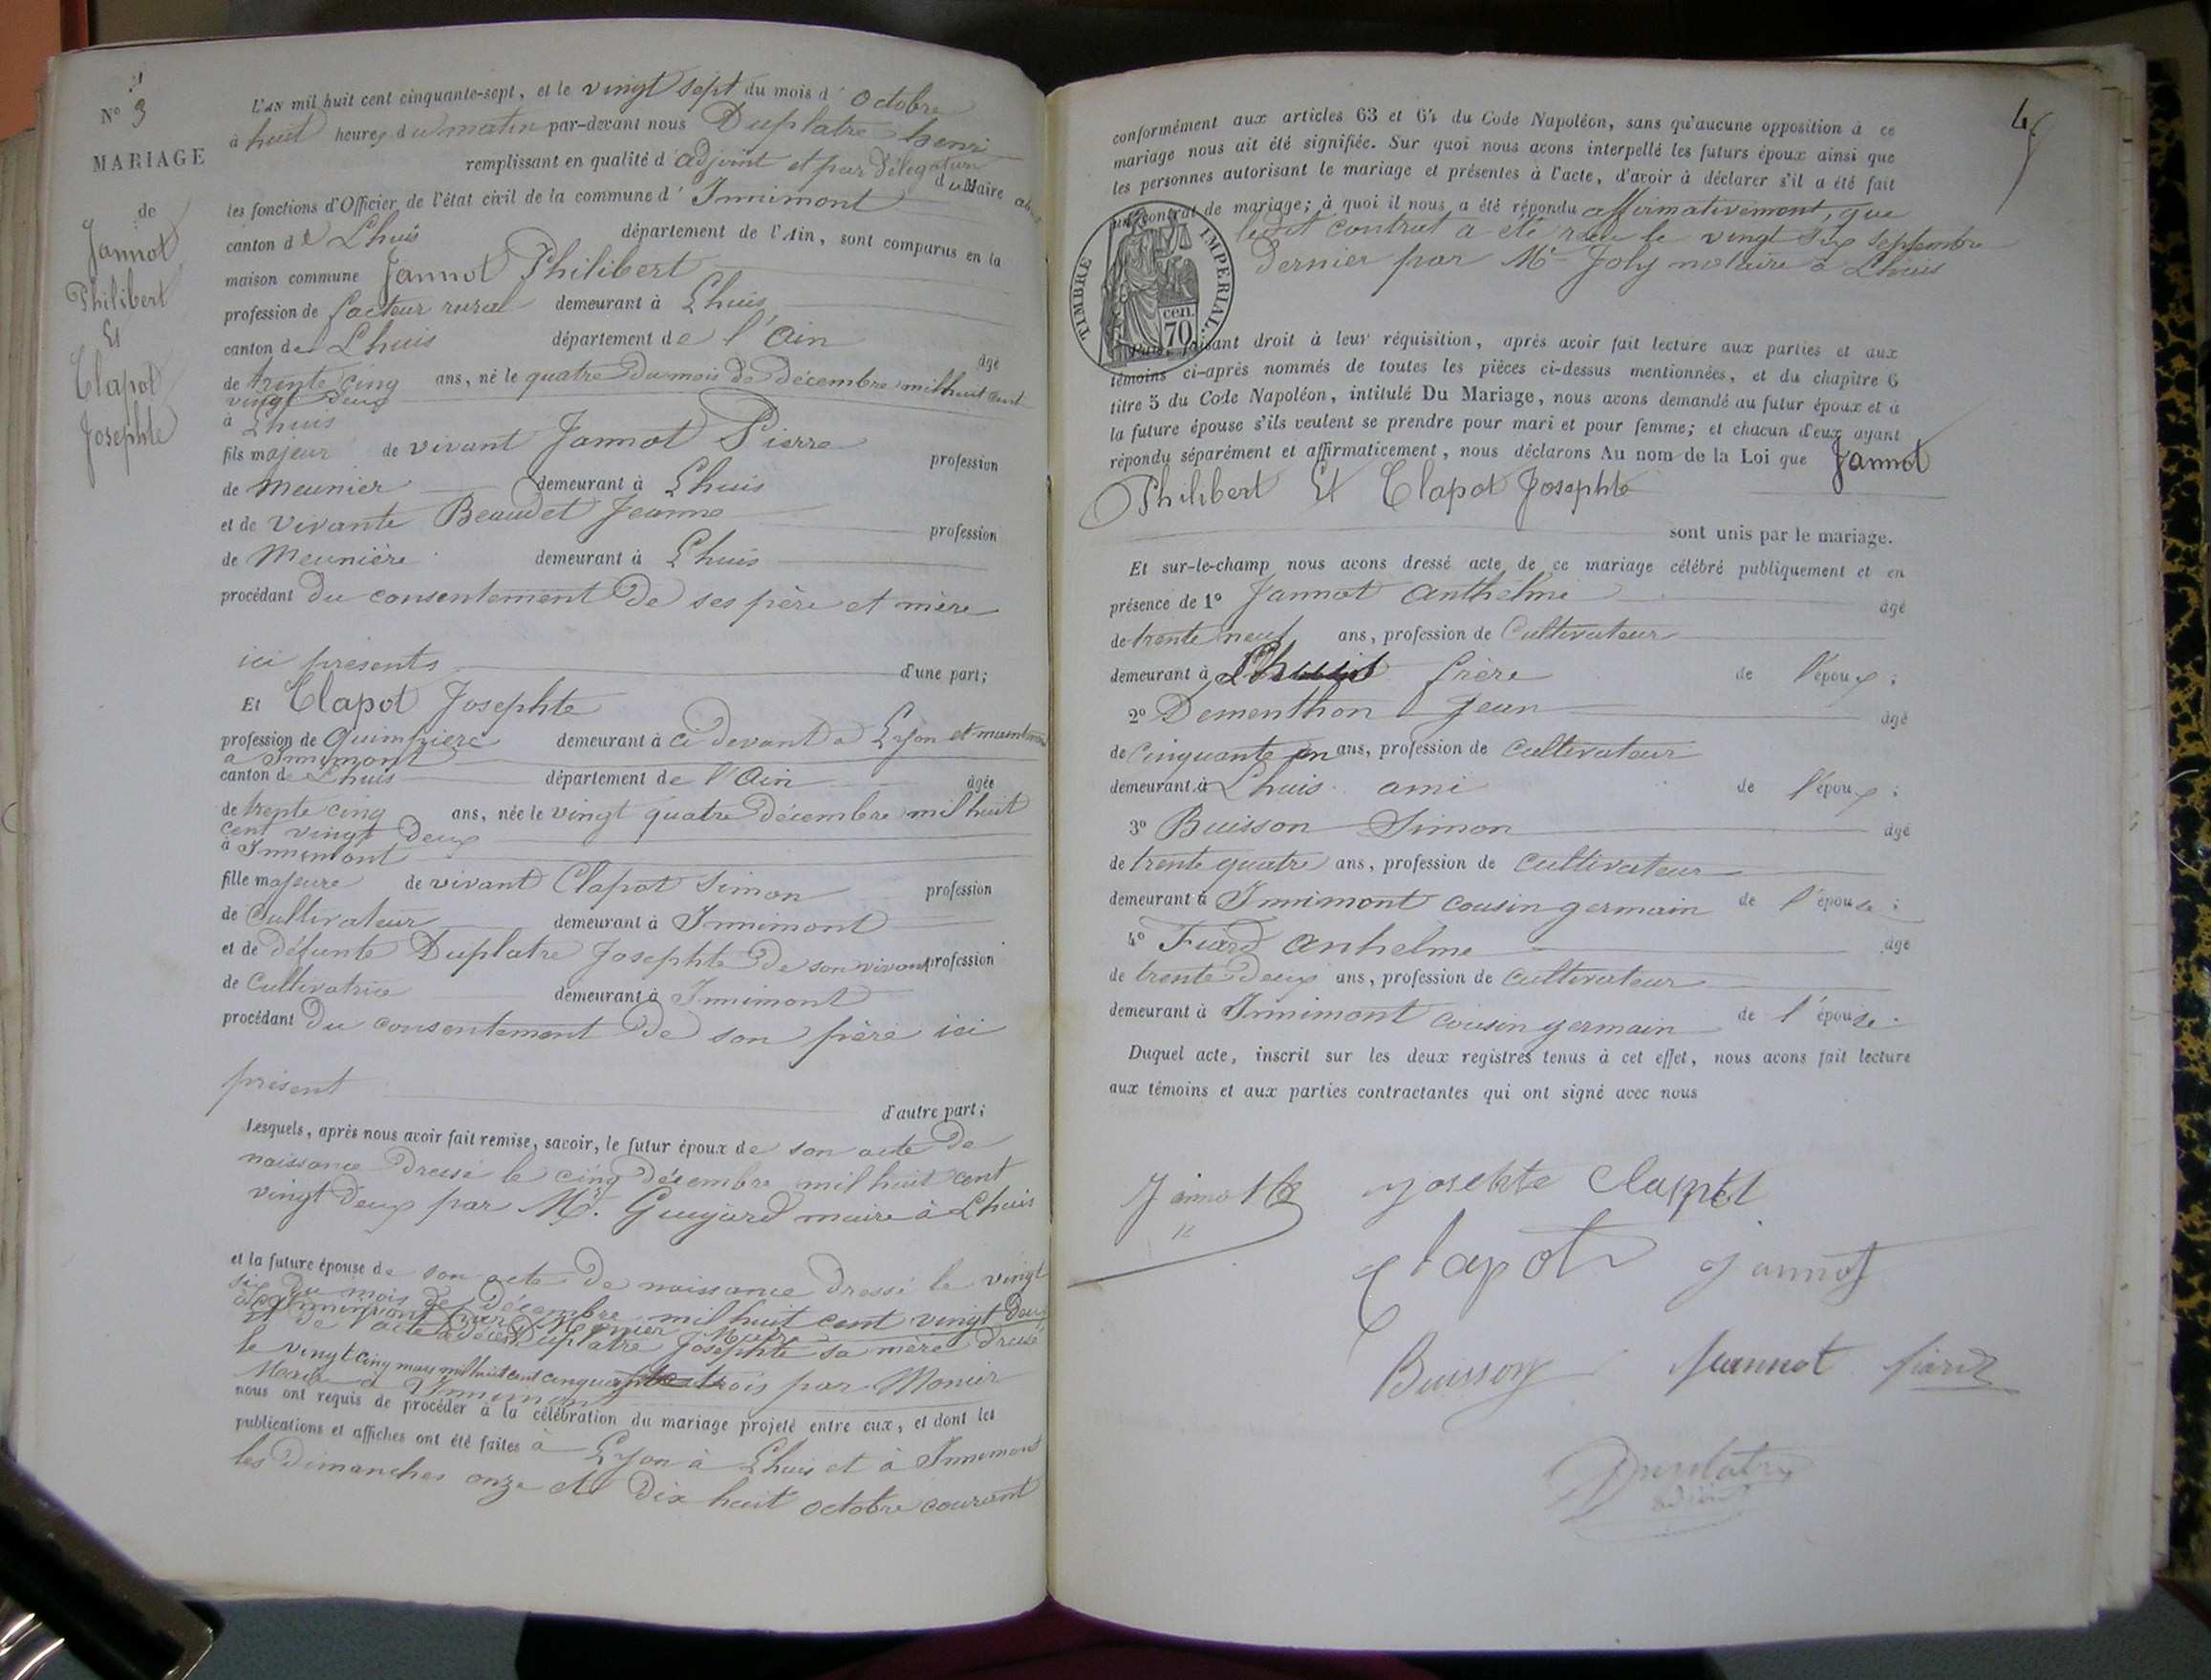 N° 3
MARIAGE
de
Jannot
Philibert
Et
Clapot
Josephte
L'AN mil huit cent cinquante-sept, et le vingt sept du mois d'octobre
à huit heures du matin par-devant nous Duplatre henri
remplissant en qualité d'adjoint et par délégation
du Maire
les fonctions d'Officier de l'état civil de la commune d'Innimont
canton de Lhuis département de l'Ain, sont comparus en la
maison commune Jannot Philibert
profession de facteur rural demeurant à Lhuis
canton de Lhuis département de l'Ain
âgé
de trente cinq ans, né le quatre du mois de décembre mil huit cent
vingt deux
à Lhuis
fils majeur de vivant Jannot Pierre profession
de Meunier demeurant à Lhuis
et de vivante Beaudet Jeanne profession
de Meunière demeurant à Lhuis
procédant du consentement de ses père et mère
ici présents d'une part;
Et Clapot Josephte
profession de Guimpière demeurant à ci devant a Lyon et maintenant
a Innimont
canton de Lhuis département de l'Ain âgée
de trente cinq ans, née le vingt quatre décembre mil huit
cent vingt deux
à Innimont
fille majeure de vivant Clapot Simon profession
de Cultivateur demeurant à Innimont
et de défunte Duplatre Josephte de son vivant profession
de Cultivatrice demeurant à Innimont
procédant du consentement de son père ici
présent
d'autre part;
Lesquels, après nous avoir fait remise, savoir, le futur époux de son acte de
naissance dressé le cinq décembre mil huit cent
vingt deux par Mr. Guyard maire à Lhuis
et la future épouse de son acte de naissance dressé le vingt
six du mois de décembre mil huit cent vingt deux
à Innimont par Monier Maire
Et de l'acte de décès Duplatre Josephte sa mère dressé
le vingt cinq may mil huit cent cinquante trois par Monier
Maire à Innimont
nous ont requis de procéder à la célébration du mariage projeté entre eux, et dont les
publications et affiches ont été faites à Lyon à Lhuis et à Innimont
les dimanches onze et dix huit octobre courant
conformément aux articles 63 et 64 du Code Napoléon, sans qu'aucune opposition à ce
mariage nous ait été signifiée. Sur quoi nous avons interpellé les futurs époux ainsi que
les personnes autorisant le mariage et présentes à l'acte, d'avoir à déclarer s'il a été fait
un contrat de mariage; à quoi il nous a été répondu affirmativement, que
ledit contrat a été reçu le vingt six septembre
dernier par Me Joly notaire à Lhuis
TIMBRE IMPERIAL.
cen.
70
Puis, faisant droit à leur réquisition, après avoir fait lecture aux parties et aux
témoins ci-après nommés de toutes les pièces ci-dessus mentionnées, et du chapitre 6
titre 5 du Code Napoléon, intitulé Du Mariage, nous avons demandé au futur époux et à
la future épouse s'ils veulent se prendre pour mari et pour femme; et chacun d'eux ayant
répondu séparément et affirmativement, nous déclarons Au nom de la Loi que Jannot
Philibert Et Clapot Josephte
sont unis par le mariage.
Et sur-le-champ nous avons dressé acte de ce mariage célébré publiquement et en
présence de 1° Jannot Anthelme âgé
de trente neuf ans, profession de Cultivateur
demeurant à Lhuis frère de l'époux;
2° Dementhon Jean âgé
de cinquante un ans, profession de cultivateur
demeurant à Lhuis ami de l'époux;
3° Buisson Simon âgé
de trente quatre ans, profession de cultivateur
demeurant à Innimont cousin germain de l'épouse;
4° Fiard Anhelme âgé
de trente deux ans, profession de cultivateur
demeurant à Innimont cousin germain de l'épouse.
Duquel acte, inscrit sur les deux registres tenus à cet effet, nous avons fait lecture
aux témoins et aux parties contractantes qui ont signé avec nous
josehte Clappot
Clapot Jannot
Buisson Jeannot fiard
Duplatre
adjoint